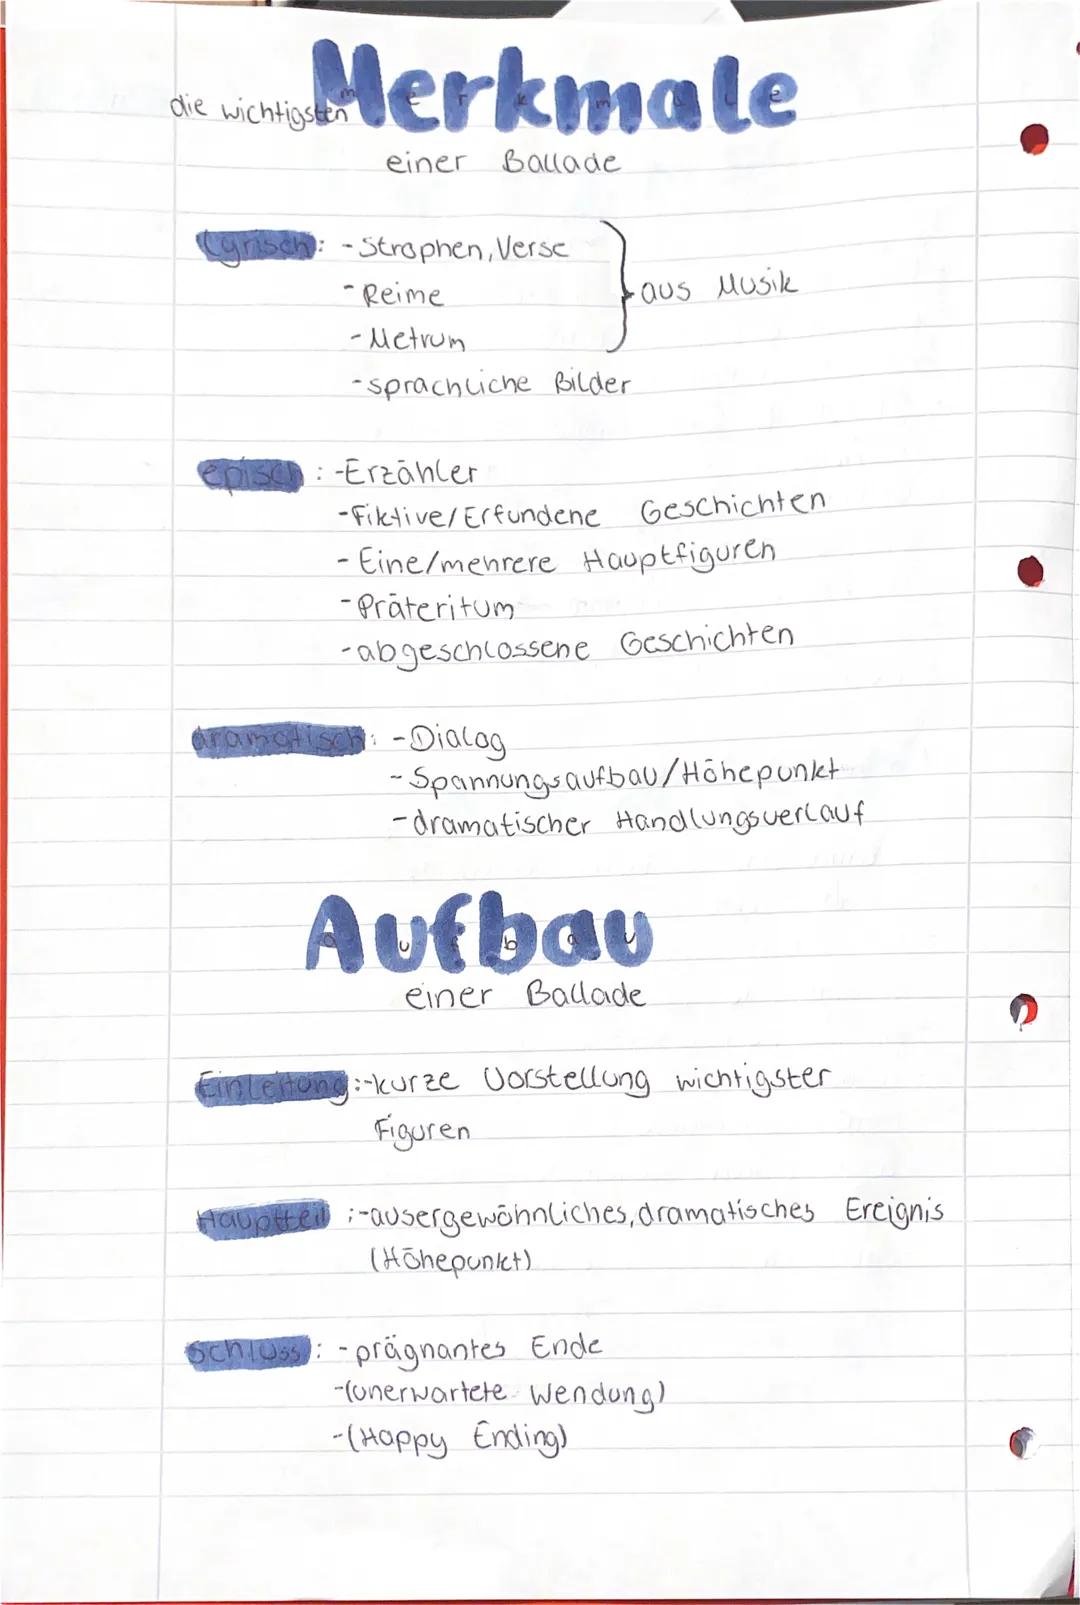 die wichtigsten Merkmale
einer Ballade
Lyrisch: -Strophen, Verse
-Reime
aus Musik
-Metrum
-sprachliche Bilder
episch: -Erzähler
-Fiktive/Erfundene Geschichten
-Eine/mehrere Hauptfiguren
-Präteritum
-abgeschlossene Geschichten
dramatisch: -Dialog
-Spannungsaufbau/Höhepunkt
-dramatischer Handlungsverlauf
Aufbau
einer Ballade
Einleitung: -kurze Vorstellung wichtigster
Figuren
Hauptteil: -ausergewöhnliches, dramatisches Ereignis
(Höhepunkt)
Schluss: -prägnantes Ende
-(unerwartete Wendung)
-(Happy Ending)